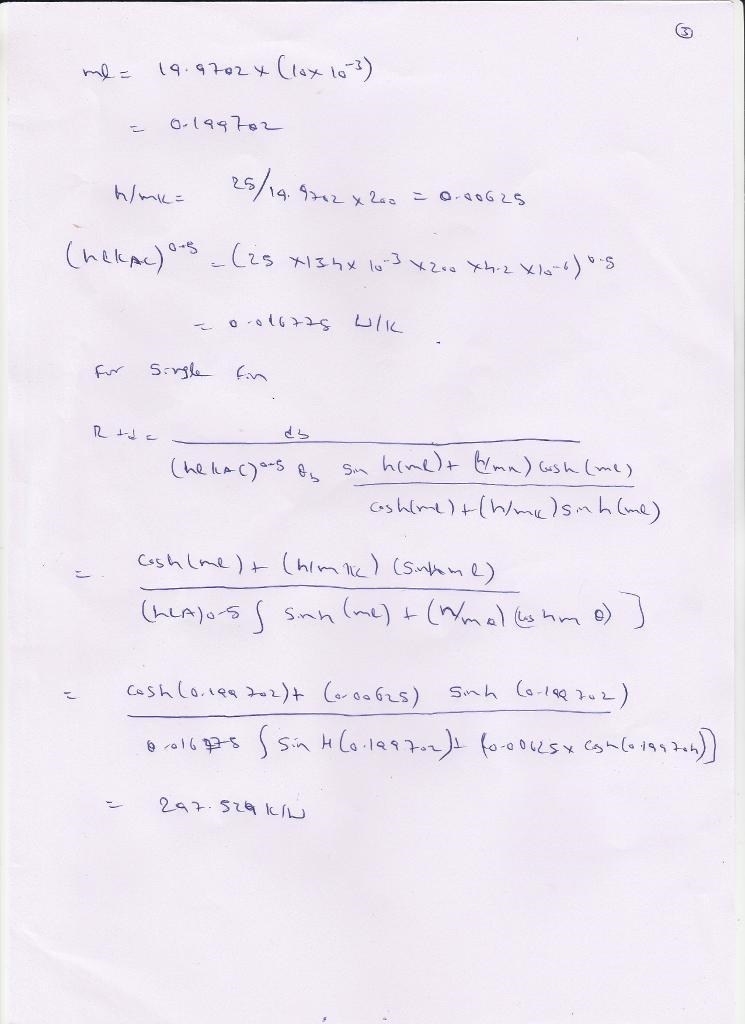 3
ml = 19.9702 x (10x10-3)
= 0.199702
h/mk = 25/19.9702 x 200 = 0.00625
(hekAC)0.5 = (25 x134x 10-3 x200 x4.2 x10-6)0.5
= 0.016775 W/K
For Single fin
R td = θb
(hekAC)0.5 θb sin h(ml)+ (h/mk) cosh (ml)
cosh(ml)+(h/mk)sinh(ml)
= cosh(ml)+ (h/mk) (sinhml)
(heA)0.5 [ sinh (ml) + (h/ma) (coshm θ) ]
= cosh(0.199702)+ (0.00625) sinh (0.199702)
0.016775 [ sin H(0.199702)+ (0.00625x cosh(0.19970h)]
= 297.529 K/W